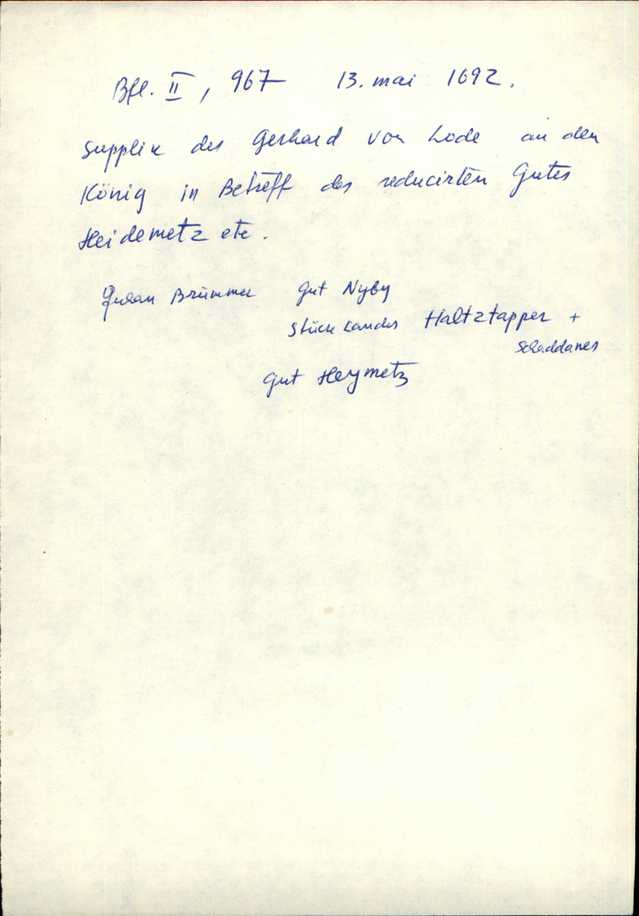 Bfl. II, 967 13. mai 1692.
Supplik des Gerhard von Lode an den
König in Betreff des reducirten Gutes
Heidemetz etc.
Brümmer Gut Nyby
Stück Landes Haltztapper +
Schaddanes
Gut Heymetz